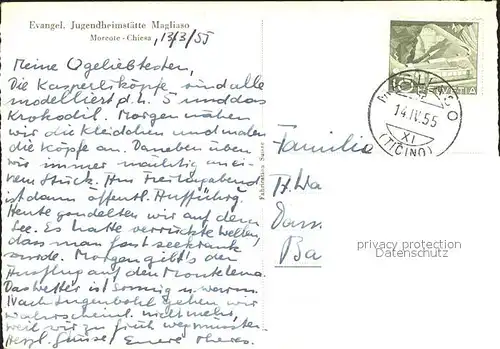 Evangel. Jugendheimstätte Magliaso
Morcote - Chiesa, 13/3/55
Meine Ogeliebtesten,
Die Kasperliköpfe sind alle
modelliert d.h. 5 und das
Krokodil. Morgen nähen
wir die Kleidchen und malen
die Köpfe an. Daneben üben
wir immer mächtig an ei-
nem Stück. Am Freitagabend
ist dann öffentl. Aufführg.
Heute gondelten wir auf dem
See. Es hatte verrückte Wellen,
dass man fast seekrank
wurde. Morgen gibt's der
Ausflug auf den Monte Lema.
Das Wetter ist sonnig u. warm.
Nach Jugenbohl gehen wir
wahrscheinl. nicht mehr,
weil wir zu früh weg müssten.
Herzl. Grüsse Euere
Fabrication Suisse
HELVETIA
14.IV.55
XI
(TICINO)
Familie
H. Wa
Dam
Ba
privacy protection
Datenschutz